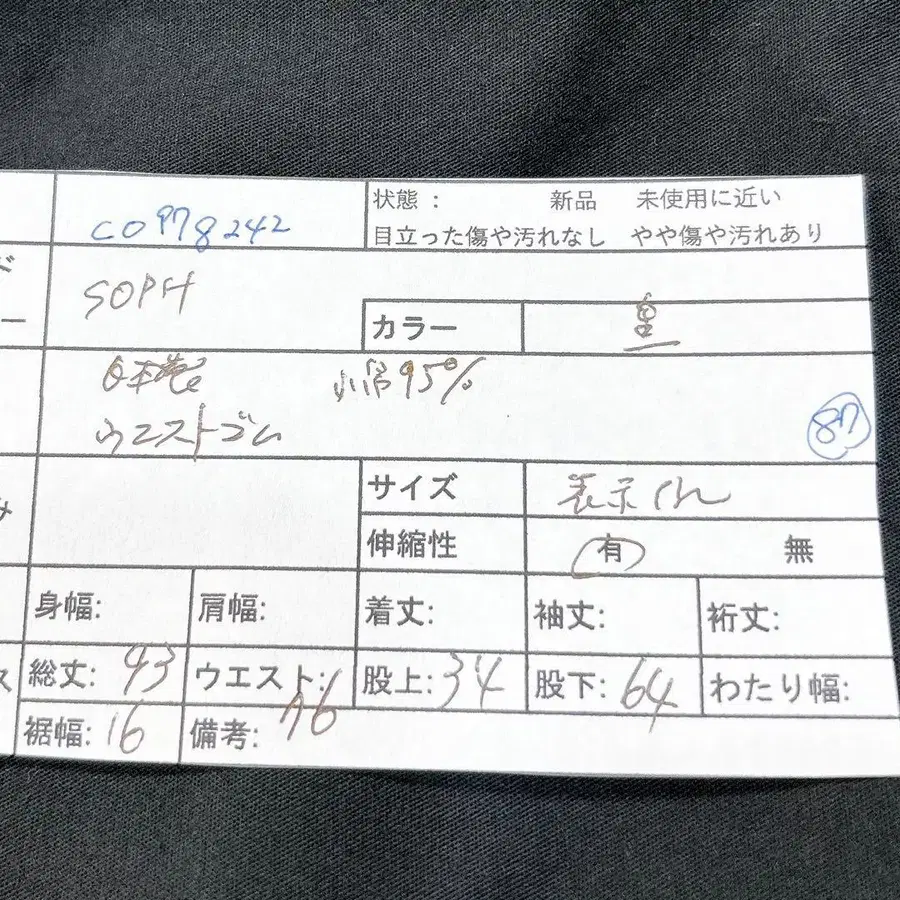 COP78242
状態： 新品 未使用に近い
目立った傷や汚れなし やや傷や汚れあり
ド
SOPH
ー
カラー 黒
日本製 綿95%
ウエストゴム
87
サイズ 表示なし
み
伸縮性 有 無
身幅: 肩幅: 着丈: 袖丈: 裄丈:
ス 総丈: 93 ウエスト: 76 股上: 34 股下: 64 わたり幅:
裾幅: 16 備考: